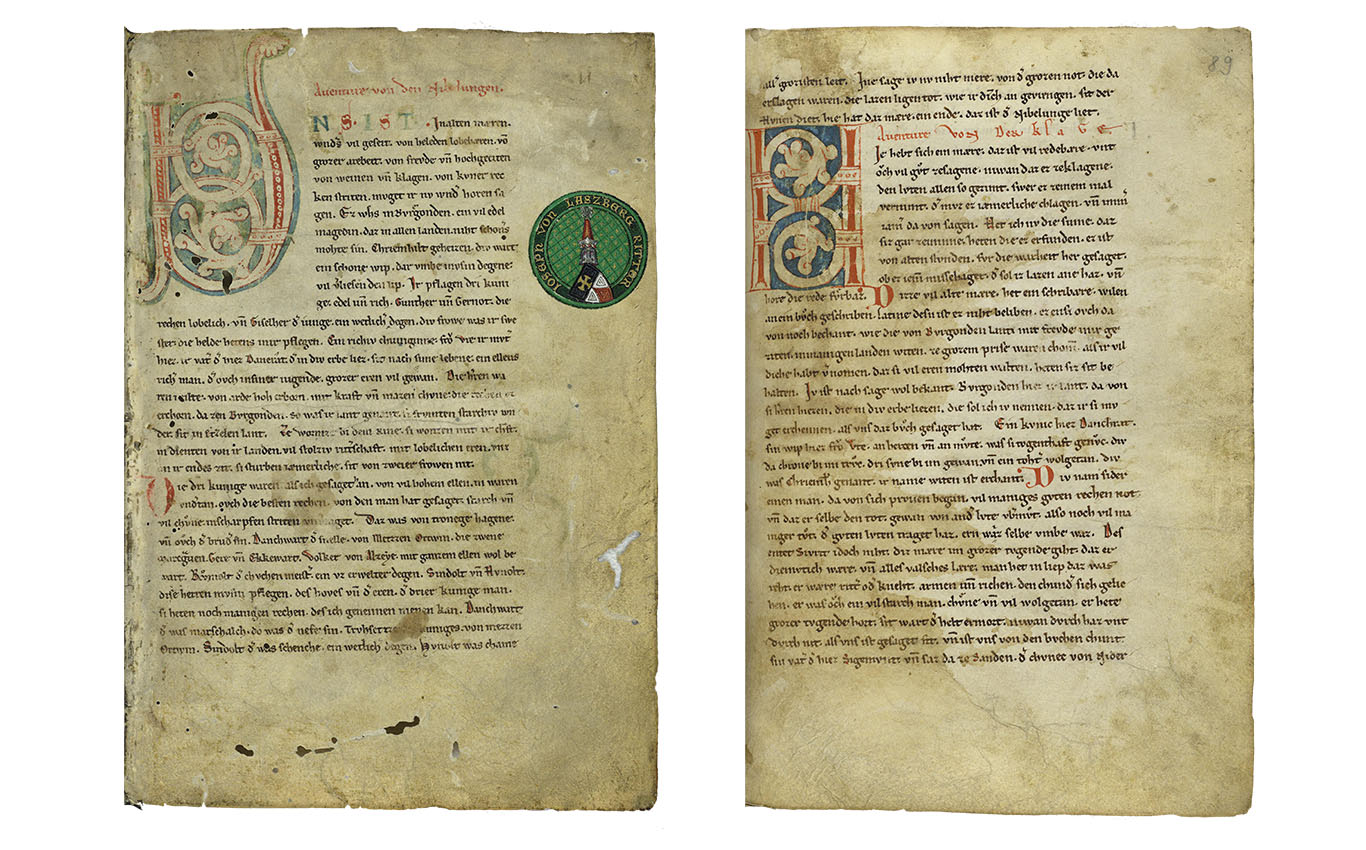 Aventure von den Nibelungen.
VNS. IST. In alten mæren.
wnders vil geseit. von heleden lobebæren. vō
grozer arebeit. von frevde vn̄ hochgeciten
von weinen vn̄ klagen. von kvner rec
ken striten. mvget ir nv wnd' horen sa
gen. Ez whs in Bvrgonden. ein vil edel
magedin. daz in allen landen. niht schoners
mohte sin. Chriemhilt geheizen. div wart
ein schone wip. dar vmbe mvsin degene
vil v'liesen den lip. Ir pflagen dri kuni
ge. edel vn̄ rich. Gunther vn̄ Gernot. die
rechen lobelich. vn̄ Giselher d' iunge. ein wetlich' degen. div frowe was ir swe
ster. die helde hetens in ir pflegen. Ein richiv chuniginne. frō Vte ir mvt'
hiez. ir vat' d' hiez Dancrat. d' in div erbe liez. sit nach sime lebene. ein ellens
rich' man. d' ovch in siner iugende. grozer eren vil gewan. Die h'ren wa
ren milte. von arde hoh erborn. mit kraft vn̄ mazen chvne. die rechen er
erchorn. da zen Bvrgonden. so was ir lant genant. si frvmten starchiv wn
der. sit in Etzelen lant. Ze Wormz bi dem Rine. si wonten mit ir chraft.
in dienten von ir landen. vil stolziv ritt'schaft. mit lobelichen eren. vnz
an ir endes zit. si sturben iæmerliche. sit von zweier frowen nit.
Die dri kunige waren. als ich gesaget han. von vil hohem ellen. in waren
vndertan. ovch die besten rechen. von den man hat gesaget. starch vn̄
vil chvne. in scharpfen striten vnverzaget. Daz was von Tronege Hagene.
vn̄ ovch d' brud' sin. Danchwart d' snelle. von Metzen Ortwin. die zwene
marcgraven. Gere vn̄ Ekkewart. Volker von Alzeye. mit ganzem ellen wol be
wart. Rvmolt d' chvchen meist'. ein vz erwelter degen. Sindolt vn̄ Hvnolt.
dise herren mvsin pflegen. des hoves vn̄ d' eren. d' drier kunige man.
si heten noch manigen rechen. des ich genennen nienen kan. Danchwart
d' was marschalch. do was d' nefe sin. Truhsetze des kuniges. von Mezzen
Ortwin. Sindolt d' was schenche. ein wetlich degen. Hvnolt was chame
IOSEPH VON LASZBERG RITTER
89
all' grozisten leit. Ine sage iv nv niht mere. von d' grozen not. die da
erslagen waren. die lazen ligen tot. wie ir dīch an gevîengen. sit der
Hvnen diet. hie hat daz mære. ein ende. daz ist d' Nibelunge liet.
Aventure Von Der klage
Hie hebt sich ein mære. daz ist vil redebære. vnt
ōch vil gv̊t ze sagene. niwan daz ez ze klagene.
den lvten allen so gezimt. swer ez ze einem mal
vernimt. d' mvz ez iæmerliche chlagen. vn̄ imm'
iam' da von sagen. Het ich nv die sinne. daz
sir gar ze minne. heten die ez erfunden. ez ist
von alten stvnden. fvr die warheit her gesaget.
ob iem̄ missehaget. d' sol iz lazen ane haz. vn̄
hore die rede fvrbaz. Ditze vil alte mære. het ein schribære. wilen
an ein bv̊ch geschriben. Latine desn ist ez niht beliben. ez ensi ovch da
von noch bechant. wie die von Bvrgonden lant. mit frevde in ir ge
ziten. in manigen landen witen. ze grozem prise waren chom̄. als ir vil
diche habt v'nomen. daz si vil eren mohten walten. heten sir sit be
halten. Iv ist nach sage wol bekant. Bvrgonden hiez ir lant. da von
si h'ren hiezen. die in div erbe liezen. die sol ich iv nennen. daz ir si mv
get erchennen. als vns daz bv̊ch gesaget hat. Ein kvnic hiez Danchrat.
sin wip hiez frō Vte. an herzen vn̄ an mv̊te. was si tvgenthaft genv̊c. div
da chrone bi im trv̊c. dri svne bi im gewan. vn̄ ein toht' wolgetan. div
was Chriemh' genant. ir name witen ist erchant. Div nam sider
einen man. da von sich prouen began. vil maniges gv̊ten rechen not.
vn̄ daz er selbe den tot. gewan von and' lvte vbermv̊t. also noch vil ma
niger tv̊t. d' gv̊ten lvten traget haz. ern wær selbe vmbe waz. Des
entet Sivrit idoch niht. div mære im grozer tvgende giht. daz er
diemv̊tich wære. vn̄ alles valsches lære. man het in liep daz was
reht. er wære ritt' od' kneht. armen vn̄ richen. den chund' sich gelie
hen. er was ōch ein vil starch man. chv̊ne vn̄ vil wolgetan. er hete
grozer tvgende hort. sit wart d' helt ermort. niwan dvrch haz vnt
dvrch nit. als vns ist gesaget sit. vn̄ ist vns von den bv̊chen chunt.
sin vat' d' hiez Sigemvnt. vn̄ saz da ze Santen. d' chvnec von Nider